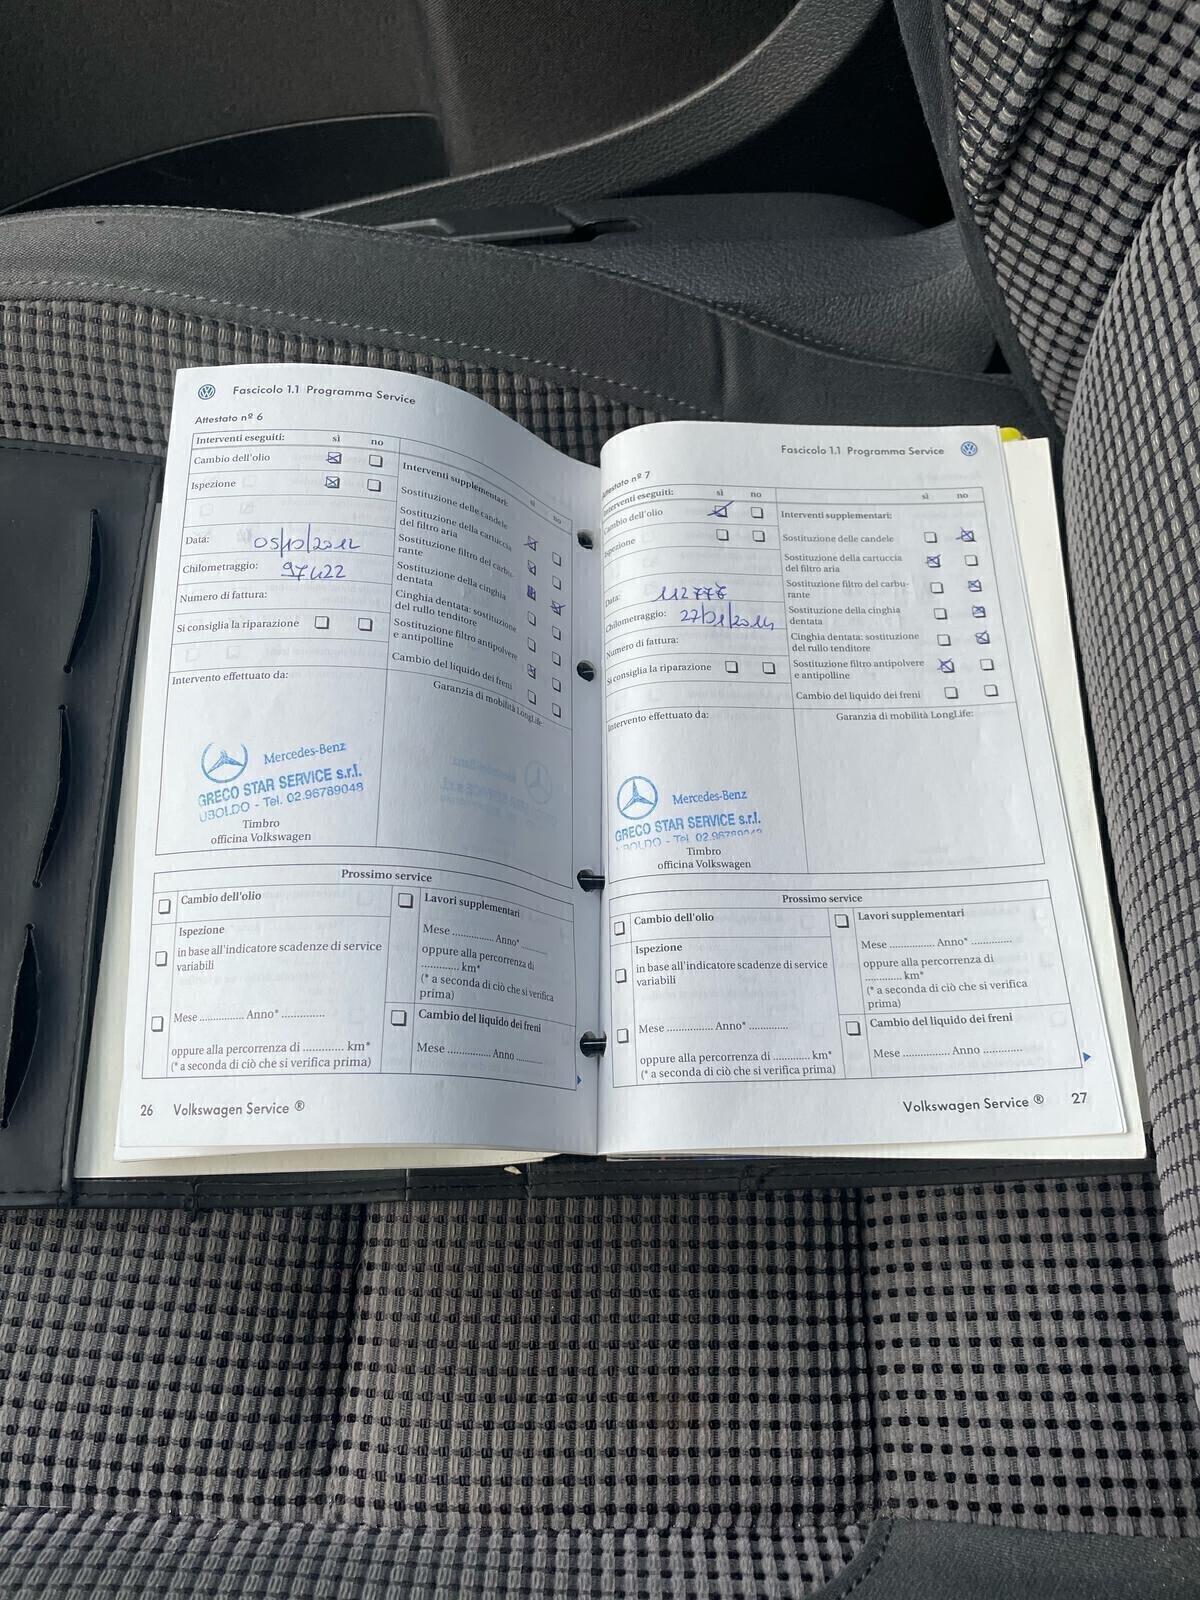 Fascicolo 1.1 Programma Service
Attestato nº 6
Interventi eseguiti: sì no
Cambio dell'olio
Ispezione
Data: 05/10/2012
Chilometraggio: 97422
Numero di fattura:
Si consiglia la riparazione
Interventi supplementari: sì no
Sostituzione delle candele
Sostituzione della cartuccia
del filtro aria
Sostituzione filtro del carbu-
rante
Sostituzione della cinghia
dentata
Cinghia dentata: sostituzione
del rullo tenditore
Sostituzione filtro antipolvere
e antipolline
Cambio del liquido dei freni
Intervento effettuato da:
Garanzia di mobilità LongLife:
Mercedes-Benz
GRECO STAR SERVICE s.r.l.
UBOLDO - Tel. 02.96789048
Timbro
officina Volkswagen
Prossimo service
Cambio dell'olio
Ispezione
in base all'indicatore scadenze di service
variabili
Mese ............... Anno* ...............
oppure alla percorrenza di ............ km*
(* a seconda di ciò che si verifica prima)
Lavori supplementari
Mese ............... Anno* .........
oppure alla percorrenza di
............ km*
(* a seconda di ciò che si verifica
prima)
Cambio del liquido dei freni
Mese ............... Anno .........
26 Volkswagen Service ®
Fascicolo 1.1 Programma Service
Attestato nº 7
Interventi eseguiti: sì no
Cambio dell'olio
Ispezione
Data: 112777
Chilometraggio: 27/01/2014
Numero di fattura:
Si consiglia la riparazione
sì no
Interventi supplementari:
Sostituzione delle candele
Sostituzione della cartuccia
del filtro aria
Sostituzione filtro del carbu-
rante
Sostituzione della cinghia
dentata
Cinghia dentata: sostituzione
del rullo tenditore
Sostituzione filtro antipolvere
e antipolline
Cambio del liquido dei freni
Intervento effettuato da:
Garanzia di mobilità LongLife:
Mercedes-Benz
GRECO STAR SERVICE s.r.l.
Timbro
officina Volkswagen
Prossimo service
Cambio dell'olio
Ispezione
in base all'indicatore scadenze di service
variabili
Mese ............... Anno* .............
oppure alla percorrenza di ............ km*
(* a seconda di ciò che si verifica prima)
Lavori supplementari
Mese ............... Anno* .............
oppure alla percorrenza di
............ km*
(* a seconda di ciò che si verifica
prima)
Cambio del liquido dei freni
Mese ............... Anno .............
Volkswagen Service ® 27